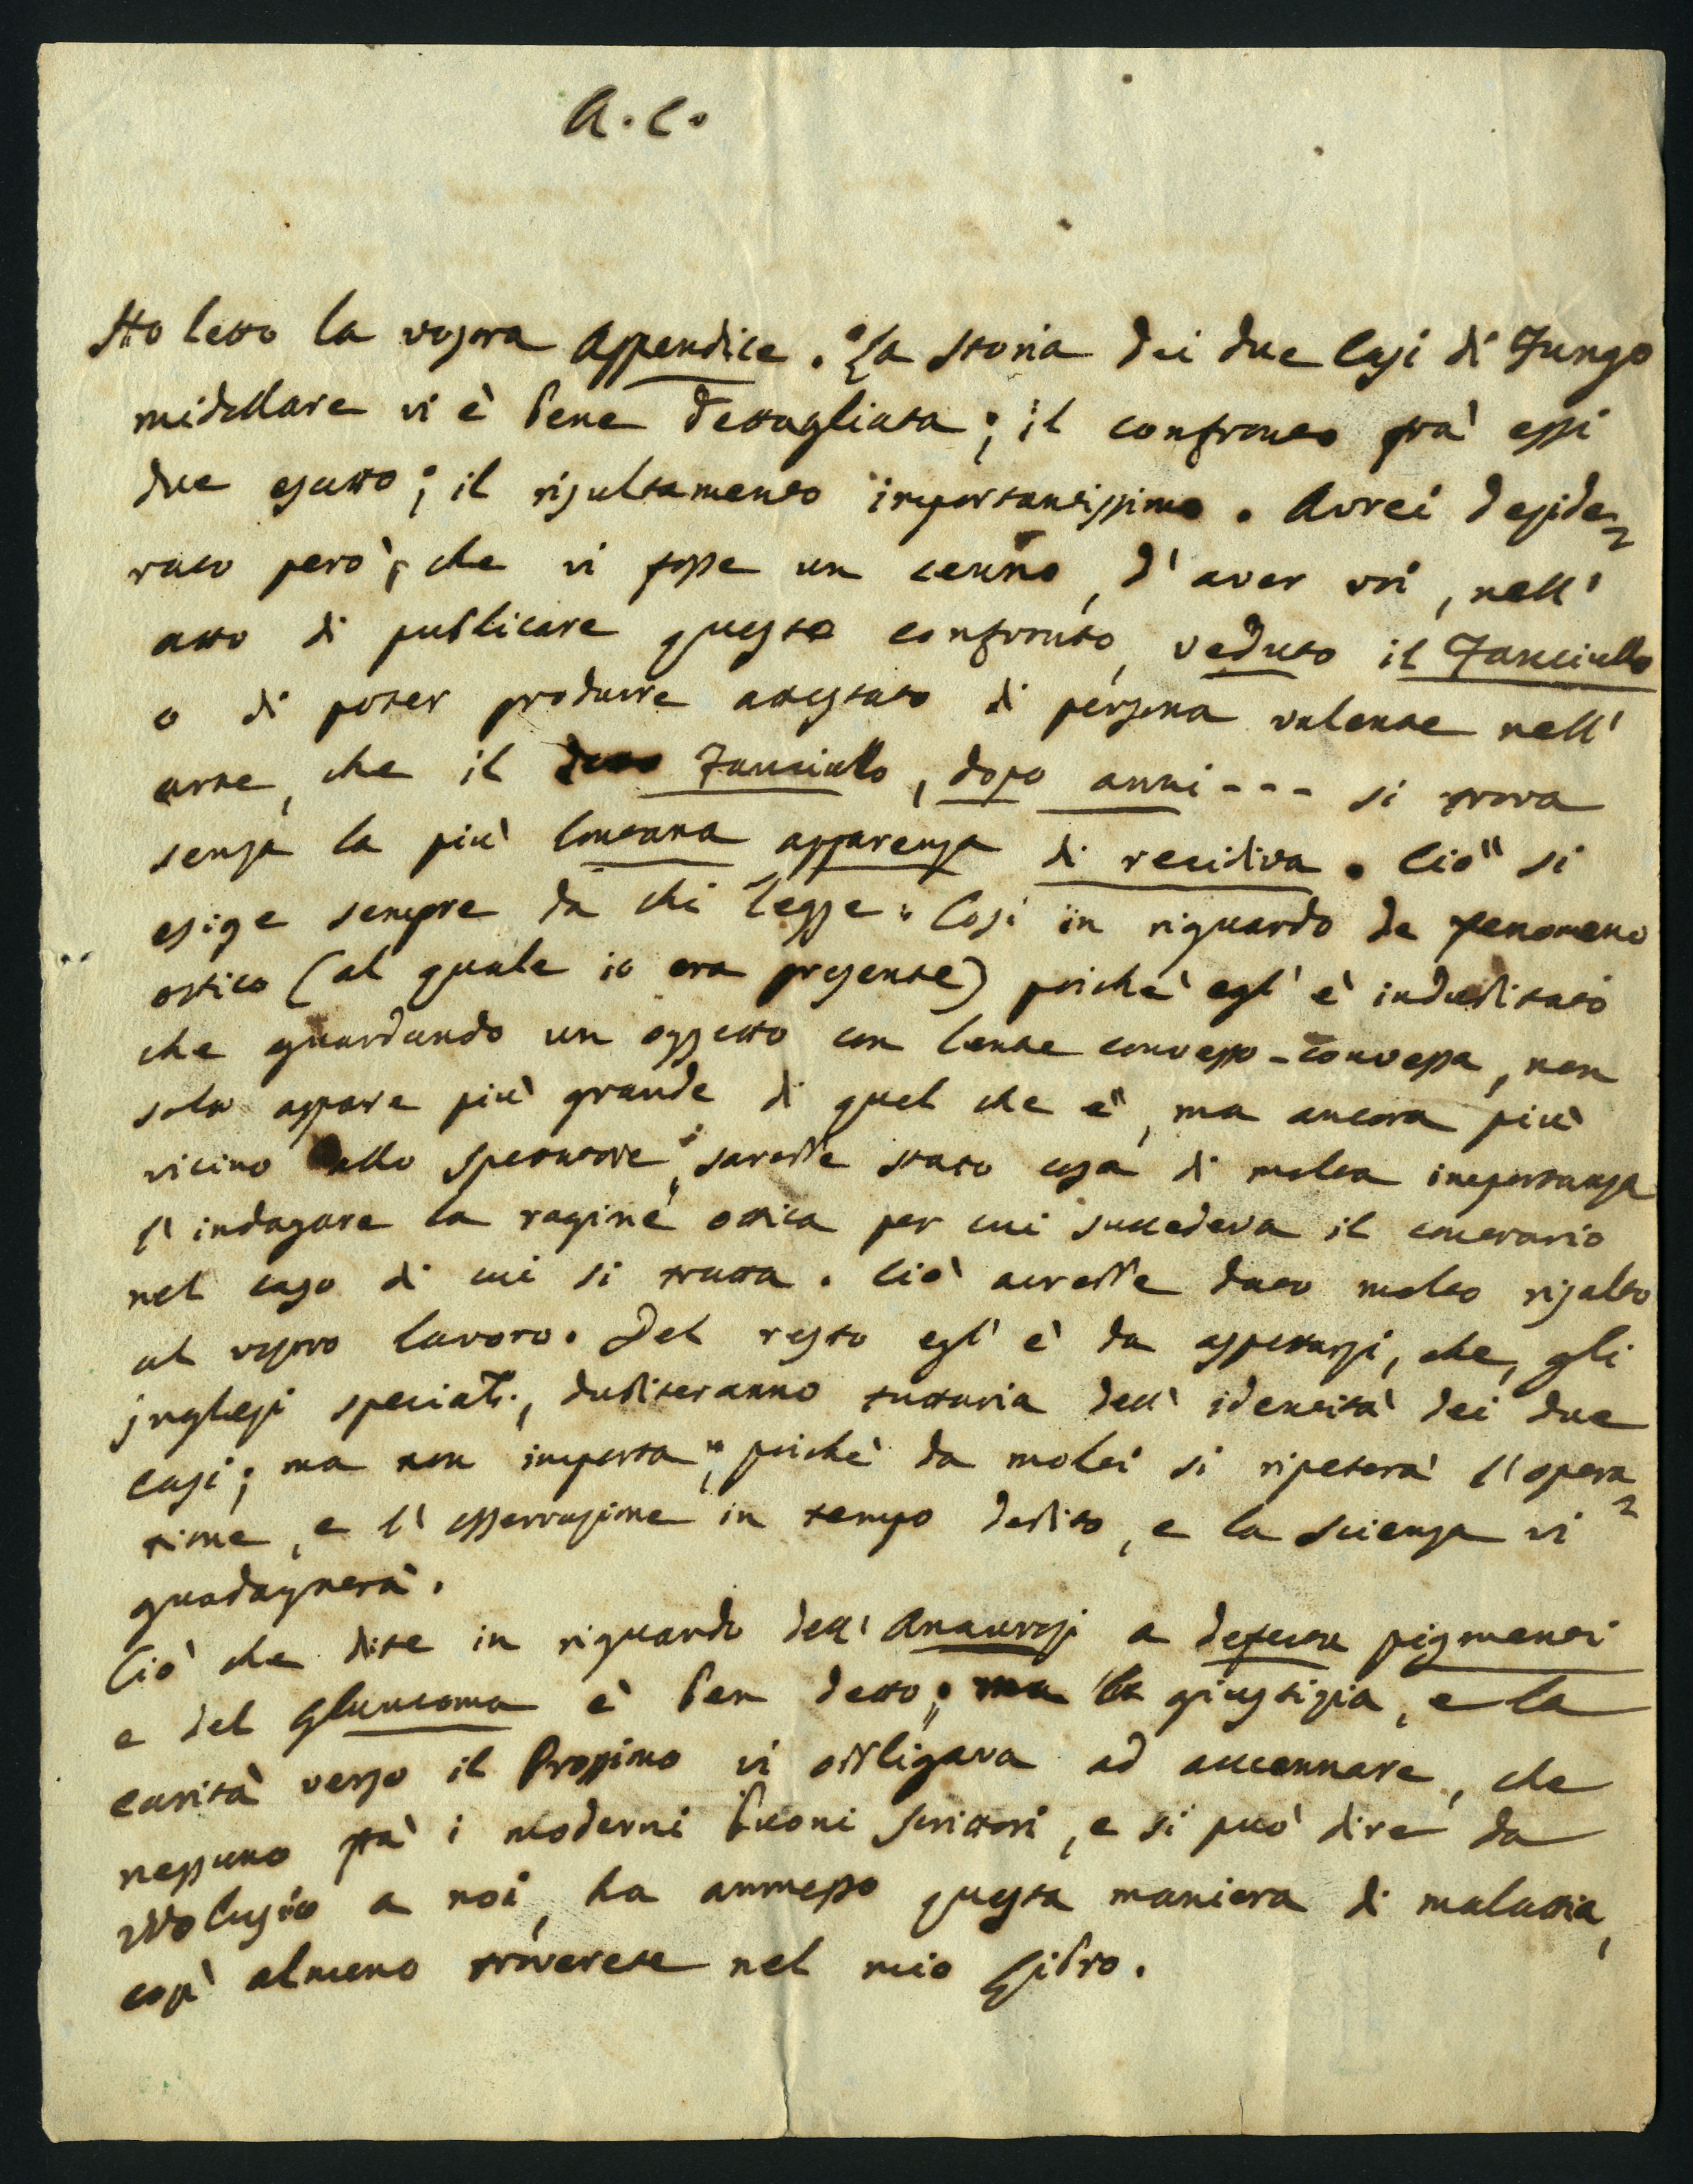 A. C.
Ho letto la vostra Appendice. La storia dei due Casi di Fungo
midollare vi è bene dettagliata; il confronto frà essi
due esatto; il risultamento importantissimo. Avrei deside=
rato però, che vi fosse un cenno, d'aver voi, nell'
atto di publicare questo confronto, veduto il Fanciullo
o di poter produrre attestato di persona valente nell'
arte, che il Fanciullo, dopo anni --- si trova
senza la più lontana apparenza di recidiva. Ciò si
esige sempre da chi legge. Così in riguardo de fenomeno
ottico (al quale io era presente) poichè egl' è indubitato
che guardando un oggetto con lente convesso-convessa, non
solo appare più grande di quel che è, ma ancora più
vicino allo spettatore, sarebbe stato cosa di molta importanza
l'indagare la ragine ottica per cui succedeva il contrario
nel caso di cui si tratta. Ciò avrebbe dato molto risalto
al vostro lavoro. Del resto egl' è da aspettarsi, che, gli
inglesi specialte., dubiteranno tuttavia dell' identità dei due
casi; ma non importa, poichè da molti si ripeterà l'opera=
zione, e l'osservazione in tempo debito, e la scienza vi
guadagnerà.
Ciò che dite in riguardo dell' Amaurosi a defectu pigmenti
e del Glaucoma è ben detto; ma la giustizia, e la
carità verso il Prossimo vi obbligava ad accennare, che
nessuno frà i moderni buoni scrittori, e si può dire da
a noi, ha ammesso questa maniera di malattia,
così almeno troverete nel mio Libro.